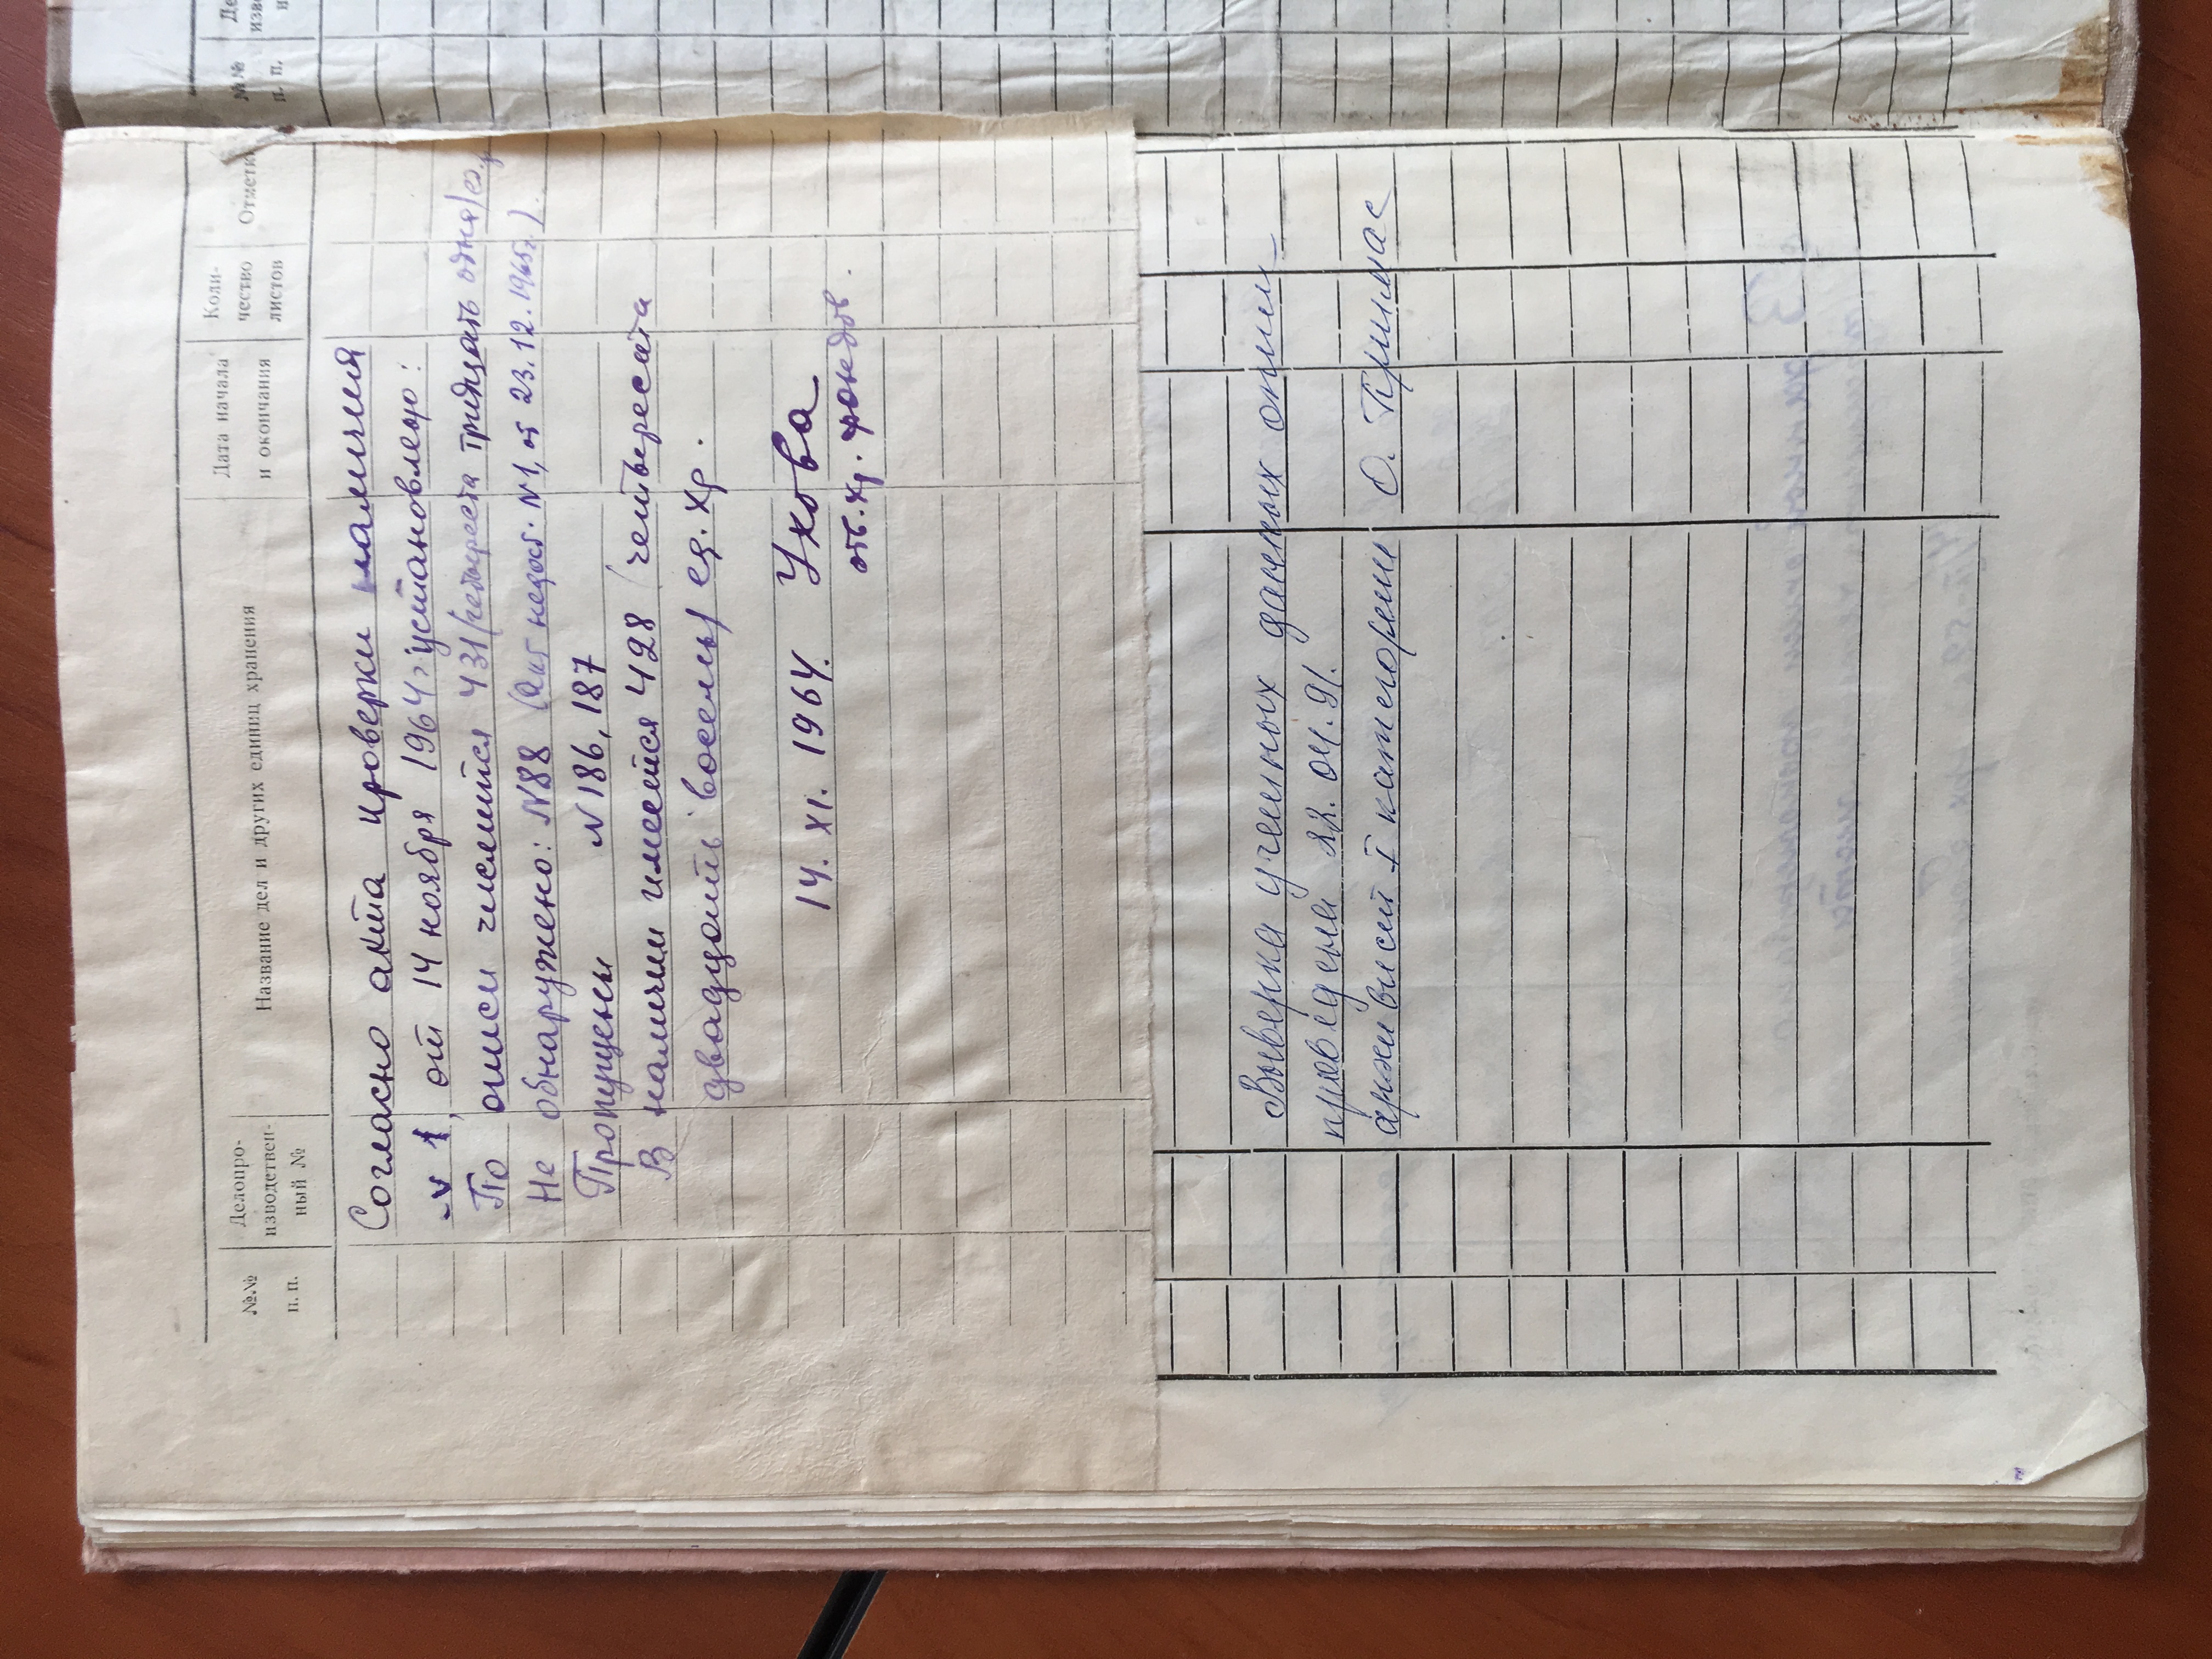 №№ п. п.
Делопро-
изводствен-
ный №
Название дел и других единиц хранения
Дата начала
и окончания
Коли-
чество
листов
Отметк
Согласно акта проверки наличия
N 1, от 14 ноября 1964 г. установлено:
По описи числится 431 (четыреста тридцать одна) ед.
Не обнаружено: N88 (Акт недост. N1, от 23.12.1965г.).
Пропущены N 186, 187
В наличии имеется 428 (четыреста
двадцать восемь) ед. хр.
14. XI. 1964. Ухова
отв. хр. фондов.
Выверка учетных данных описи
проведена 22. 04. 91.
архивист I категории О. Примас
№№
п. п.